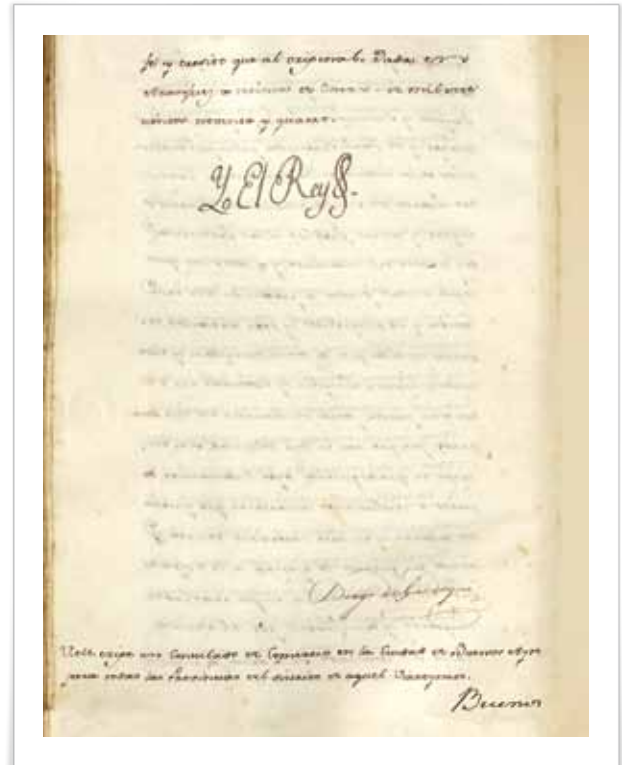 fe y credito que al original. Dada en
Aranjuez a treinta de Enero de mil sete
cientos noventa y quatro.
Yo El Rey
Diego de Gardoqui
V.M. erige un Consulado de Comercio en la Ciudad de Buenos Ayres
para todas las Provincias del distrito de aquel Virreynato.
Buenos